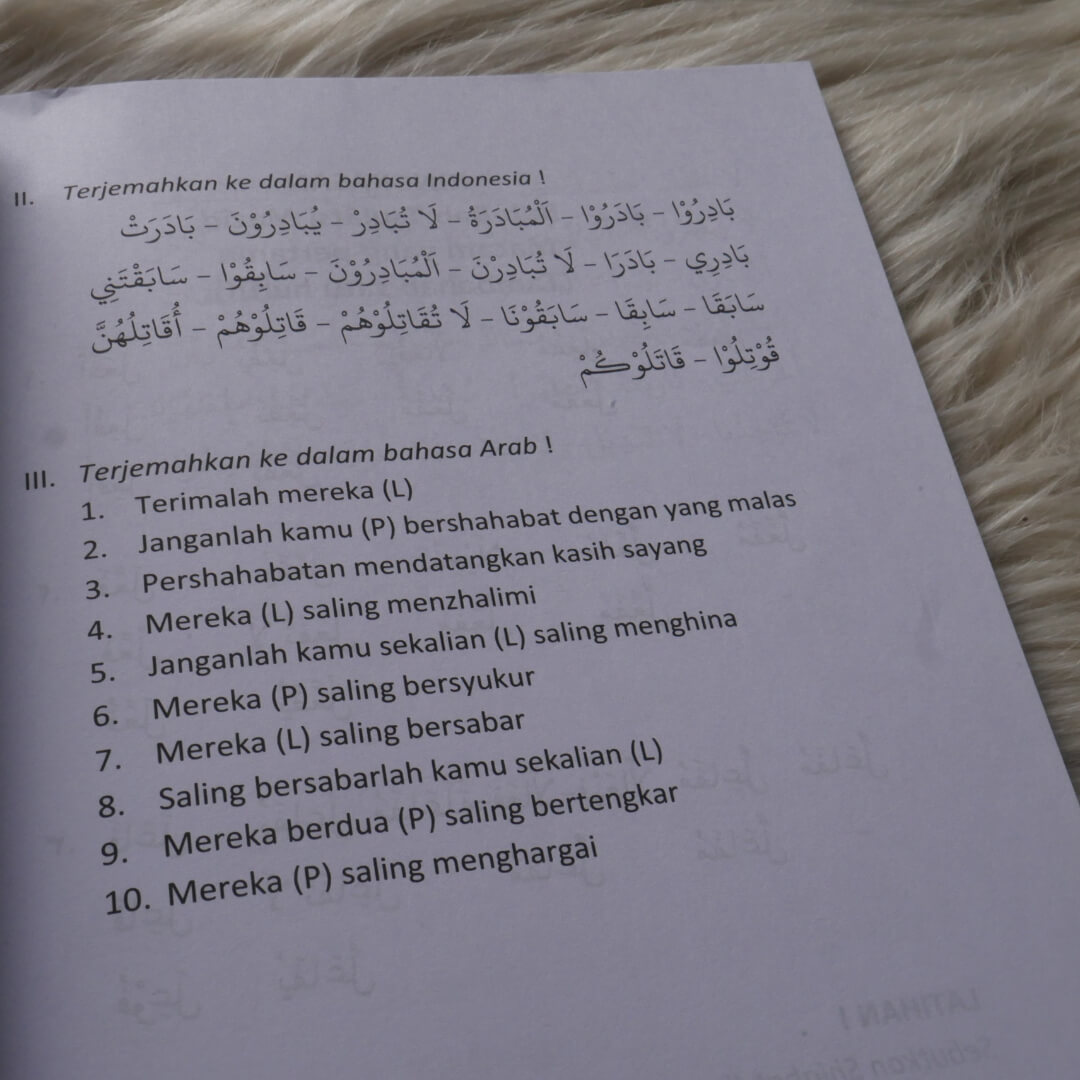 II. Terjemahkan ke dalam bahasa Indonesia !
بَادِرُوْا – بَادَرُوْا – اَلْمُبَادَرَةُ – لَا تُبَادِرْ – يُبَادِرُوْنَ – بَادَرَتْ
بَادِرِي – بَادَرَا – لَا تُبَادِرْنَ – اَلْمُبَادِرُوْنَ – سَابِقُوْا – سَابَقْتَنِي
سَابَقَا – سَابِقَا – سَابَقُوْنَا – لَا تُقَاتِلُوْهُمْ – قَاتِلُوْهُمْ – أُقَاتِلُهُنَّ
قُوْتِلُوْا – قَاتَلُوْكُمْ
III. Terjemahkan ke dalam bahasa Arab !
1. Terimalah mereka (L)
2. Janganlah kamu (P) bershahabat dengan yang malas
3. Pershahabatan mendatangkan kasih sayang
4. Mereka (L) saling menzhalimi
5. Janganlah kamu sekalian (L) saling menghina
6. Mereka (P) saling bersyukur
7. Mereka (L) saling bersabar
8. Saling bersabarlah kamu sekalian (L)
9. Mereka berdua (P) saling bertengkar
10. Mereka (P) saling menghargai